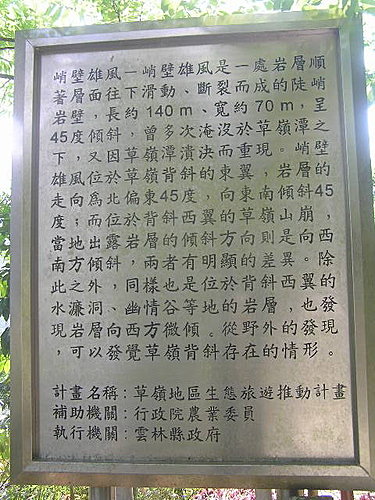 峭壁雄風－峭壁雄風是一處岩層順
著層面往下滑動、斷裂而成的陡峭
岩壁，長約140m、寬約70m，呈
45度傾斜，曾多次淹沒於草嶺潭之
下，又因草嶺潭潰決而重現。峭壁
雄風位於草嶺背斜的東翼，岩層的
走向為北偏東45度，向東南傾斜45
度；而位於背斜西翼的草嶺山崩，
當地出露岩層的傾斜方向則是向西
南方傾斜，兩者有明顯的差異。除
此之外，同樣也是位於背斜西翼的
水濂洞、幽情谷等地的岩層，也發
現岩層向西方微傾。從野外的發現
，可以發覺草嶺背斜存在的情形。
計畫名稱：草嶺地區生態旅遊推動計畫
補助機關：行政院農業委員
執行機關：雲林縣政府